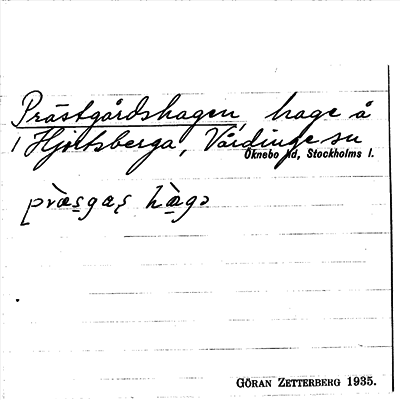 Prästgårdshagen, hage å
1 Hjortsberga, Vårdinge sn
Öknebo hd, Stockholms l.
GÖRAN ZETTERBERG 1935.